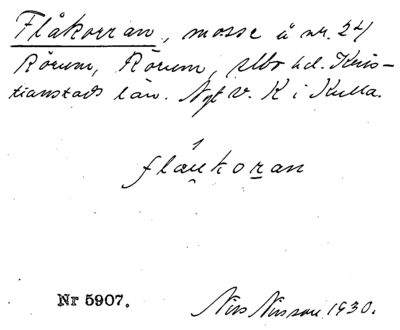 Flåkorran, mosse å nr. 24
Rörum, Rörum, Albo hd. Kris-
tianstads län. Ngt v. K i Kulla.
flåu̯koran
Nr 5907.
Nils Nilsson 1930.